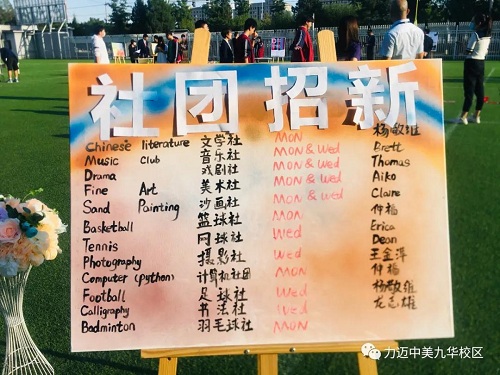 社团招新
Chinese literature 文学社 MON
Music Club 音乐社 MON & Wed Brett
Drama 戏剧社 MON & Wed Thomas
Fine Art 美术社 MON & Wed Aiko
Sand Painting 沙画社 MON & Wed Claire
Basketball 篮球社 MON 仲福
Tennis 网球社 Wed Erica
Photography 摄影社 Wed Dean
Computer (python) 计算机社团 MON
Football 足球社 Wed 仲福
Calligraphy 书法社 Wed
Badminton 羽毛球社 MON
力迈中美九华校区